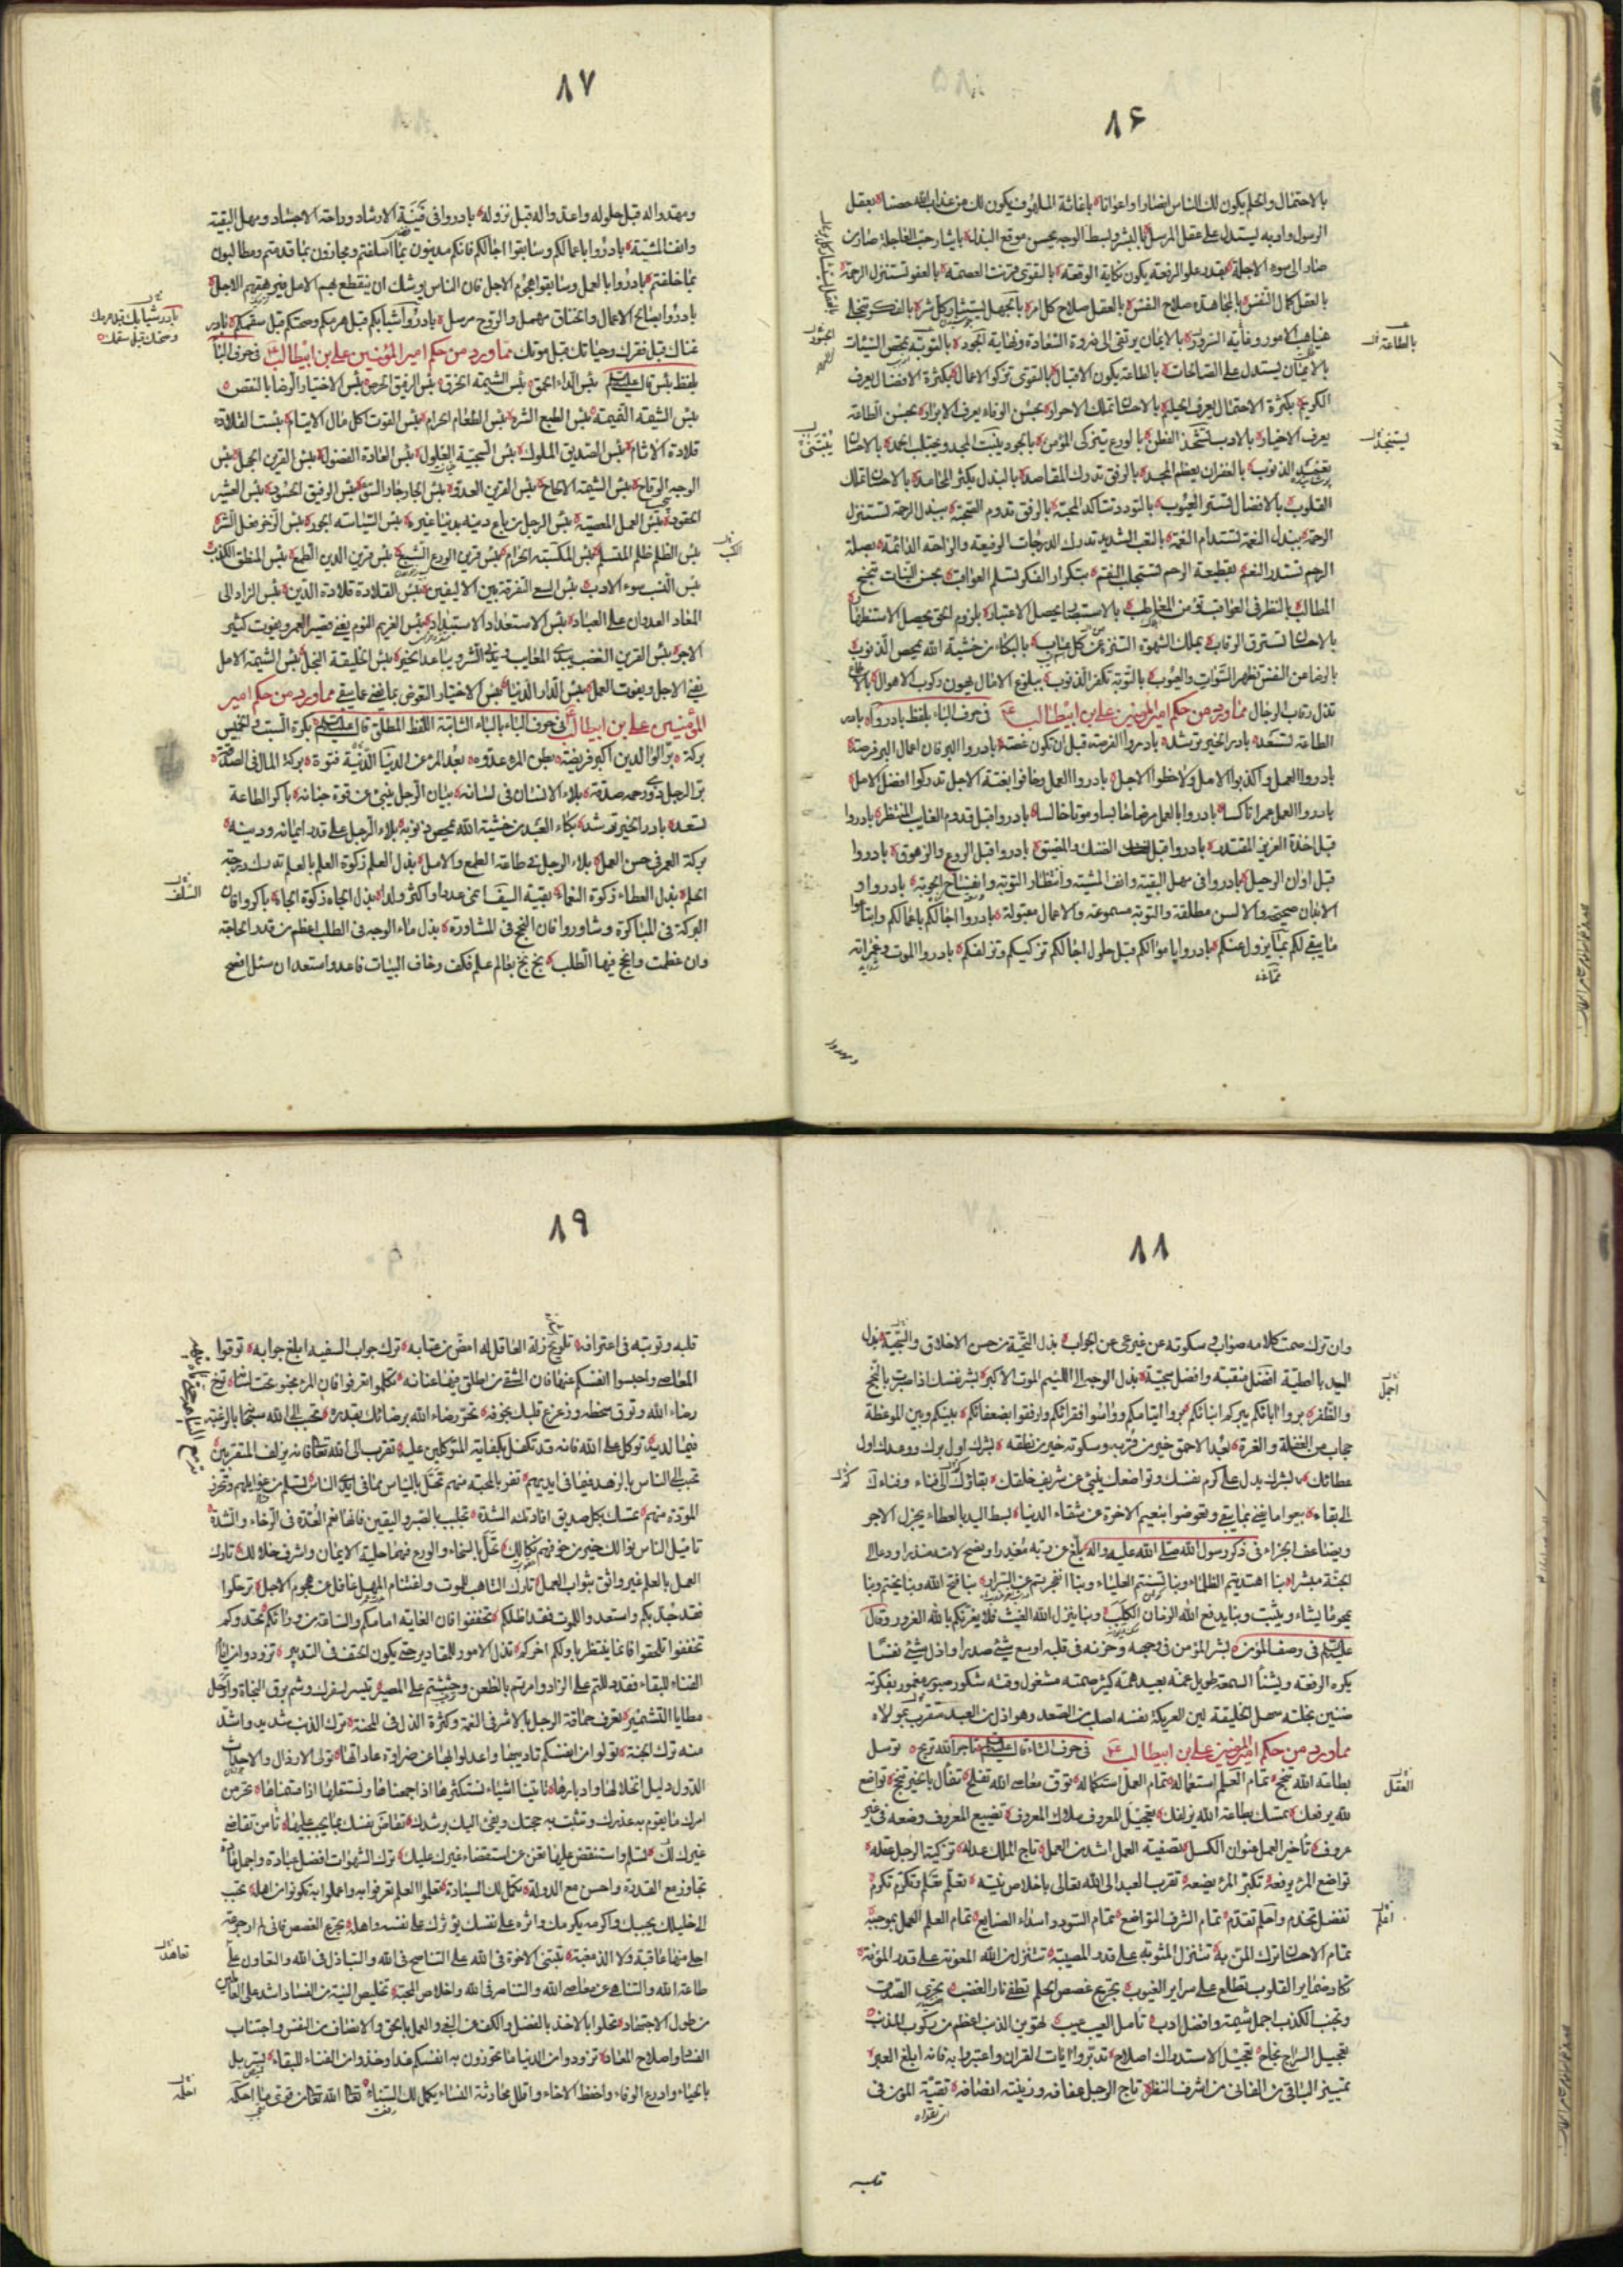 ٨۶
بالاحتمال والحلم يكون لك الناس انصارا واعوانا باغاثة الملهوف يكون لك من عذاب الله حصنا بعقل
الرسول وادبه يستدل على عقل المرسل بالبشر وبسط الوجه يحسن موقع البذل بايثار حب العاجلة صار من
صار الى سوء الاجلة بقدر علو الرفعة يكون نكاية الوقعة بالتقوى قرنت العصمة بالعفو تستنزل الرحمة
بالعقل كمال النفس بالمجاهدة صلاح النفس بالعقل صلاح كل امر بالجهل يستثار كل شر بالفكر تنجلى
غياهب الامور بالايمان يرتقى الى ذروة السعادة ونهاية الحبور بالتوبة تمحص السيئات
بالايمان يستدل على الصالحات بالطاعة يكون الاقبال بالتقوى تزكو الاعمال بكثرة الافضال يعرف
الكريم بكثرة الاحتمال يعرف الحليم بالاحسان تملك الاحرار بحسن الوفاء يعرف الابرار بحسن الطاعة
يعرف الاخيار بالادب تشحذ الفطن بالورع يتزكى المؤمن بالجود يبتنى المجد ويجتلب الحمد بالاحسان
الذنوب بالغفران يعظم المجد بالرفق تدرك المقاصد بالبذل تكثر المحامد بالاحسان تملك
القلوب بالافضال تستر العيوب بالتودد تتأكد المحبة بالرفق تدوم الصحبة ببذل الرحمة تستنزل
الرحمة ببذل النعمة تستدام النعمة بالتعب الشديد تدرك الدرجات الرفيعة والراحة الدائمة بصلة
الرحم تستدر النعم بقطيعة الرحم تستجلب النقم بتكرار الفكر تسلم العواقب بحسن النيات تنجح
المطالب بالنظر فى العواقب تؤمن المعاطب بالاستبصار يحصل الاعتبار بلزوم الحق يحصل الاستظهار
بالاحسان تسترق الرقاب بملك الشهوة التنزه عن كل عاب بالبكاء من خشية الله تمحص الذنوب
بالرضا عن النفس تظهر السوآت والعيوب بالتوبة تكفر الذنوب ببلوغ الامال يهون ركوب الاهوال
تذل رقاب الرجال مما ورد من حكم امير المؤمنين على بن ابيطالب فى حرف الباء بلفظ بادروا بادر
الطاعة تسعد بادر الخير ترشد بادروا الفرصة قبل ان تكون غصة بادروا البر فان اعمال البر فرصة
بادروا العمل واكذبوا الامل ولاحظوا الاجل بادروا العمل وخافوا بغتة الاجل تدركوا افضل الامل
بادروا العمل عمرا ناكسا بادروا بالعمل مرضا حابسا وموتا خالسا بادروا قبل قدوم الغايب المنتظر بادروا
قبل اخذة العزيز المقتدر بادروا قبل الضنك والمضيق بادروا قبل الروع والزهوق بادروا
قبل اوان الرحيل بادروا فى مهل البقية وانف المشية وانتظار التوبة وانفساح الحوبة بادروا و
الابدان صحيحة والالسن مطلقة والتوبة مسموعة والاعمال مقبولة بادروا اجالكم باعمالكم وابتاعوا
ما يبقى لكم بما يزول عنكم بادروا باموالكم قبل حلول اجالكم تزكيكم وتزلفكم بادروا الموت وغمراته
ومهدوا
٨٧
ومهدوا له قبل حلوله واعدوا له قبل نزوله بادروا فى فينة الارشاد وراحة الاجساد ومهل البقية
وانف المشية بادروا باعمالكم وسابقوا اجالكم فانكم مدينون بما اسلفتم ومجازون بما قدمتم ومطالبون
بما خلفتم بادروا بالعمل وسابقوا هجوم الاجل فان الناس يوشك ان ينقطع بهم الامل فيرهقهم الاجل
بادروا صالح الاعمال والخناق مهمل والروح مرسل بادروا شبابكم قبل هرمكم وصحتكم قبل سقمكم بادر
غناك قبل فقرك وحياتك قبل موتك مما ورد من حكم امير المؤمنين على بن ابيطالب فى حرف الباء
بلفظ بئس قال بئس الداء الحمق بئس الشيمة الخرق بئس الرفيق الحرص بئس الاختيار الرضا بالنقص
بئس الشيمة النميمة بئس الطبع الشره بئس الطعام الحرام بئس القوت اكل مال الايتام بئست القلادة
قلادة الاثام بئس الصديق الملوك بئس السجية الغلول بئس العادة الفضول بئس القرين الجهل بئس
الوجه الوقاح بئس الشيمة الالحاح بئس القرين العدو بئس الجار جار السوء بئس الرفيق الحسود بئس العشير
الحقود بئس العمل المعصية بئس الرجل من باع دينه بدنيا غيره بئس السياسة الجور بئس الذخر فعل الشر
بئس الظلم ظلم المستسلم بئس المكسب الحرام بئس قرين الورع الشبع بئس قرين الدين الطمع بئس المنطق الكذب
بئس النسب سوء الادب بئس السعى التفرقة بين الاليفين بئس القلادة قلادة الدين بئس الزاد الى
المعاد العدوان على العباد بئس الاستعداد الاستبداد بئس الغريم النوم يفنى قصير العمر ويفوت كثير
الاجر بئس القرين الغضب يبدى المعايب ويدنى الشر ويباعد الخير بئس الخليقة البخل بئس الشيمة الامل
يفنى الاجل ويفوت العمل بئس الدار الدنيا بئس الاختيار التعوض بما يفنى عما يبقى مما ورد من حكم امير
المؤمنين على بن ابيطالب فى حرف الباء بالباء الثابتة اللفظ المطلق قال بكرة السبت والخميس
بركة بر الوالدين اكبر فريضة بطن المرء عدوه بعد المرء عن الدنيا الدنية فتوة بركة المال فى الصدقة
بر الرجل ذوى رحمه صدقة بلاء الانسان فى لسانه بيان الرجل ينبئ عن قوة جنانه باكر الطاعة
تسعد بادر الخير ترشد بكاء العبد من خشية الله تمحص ذنوبه بلاء الرجل على قدر ايمانه ودينه
بركة العمر فى حسن العمل بلاء الرجل فى طاعة الطمع والامل بذل العلم زكوة العلم بالعلم تدرك درجة
الحلم بذل العطاء زكوة النعماء بقية السيف انمى عددا واكثر ولدا بذل الجاه زكوة الجاه باكروا فان
البركة فى المباكرة وشاوروا فان النجح فى المشاورة بذل ماء الوجه فى الطلب اعظم من قدر الحاجة
وان عظمت وانجح فيها الطلب بخ بخ لعالم علم فكف وخاف البيات فاعد واستعد ان سئل افصح
بادر شبابك قبل هرمك
وصحتك قبل سقمك
٨٨
وان ترك صمت كلامه صواب وسكوته عن غير عى عن الجواب بذل التحية من حسن الاخلاق والسجية بذل
اليد بالعطية افضل منقبة وافضل سجية بذل الوجه الى اللئيم الموت الاكبر بشر نفسك اذا صبرت بالنجح
والظفر بروا اباءكم يبركم ابناءكم بروا ايتامكم وواسوا فقرائكم وارفقوا بضعفائكم بينكم وبين الموعظة
حجاب من الغفلة والغرة بعد الاحمق خير من قربه وسكوته خير من نطقه بشرك اول برك ووعدك اول
عطائك بشرك يدل على كرم نفسك وتواضعك ينبئ عن شريف خلقك بقاؤك الى فناء وفناءك
الى بقاء بيعوا ما يفنى بما يبقى وتعوضوا بنعيم الاخرة عن شقاء الدنيا بسط اليد بالعطاء يجزل الاجر
ويضاعف الجزاء فى ذكر رسول الله صلى الله عليه واله بلغ عن ربه معذرا ونصح لامته منذرا ودعا الى
الجنة مبشرا بنا اهتديتم الظلماء وبنا تسنمتم العلياء وبنا انفجرتم عن السرار بنا فتح الله وبنا يختم وبنا
يمحو ما يشاء ويثبت وبنا يدفع الله الزمان الكلب وبنا ينزل الله الغيث فلا يغرنكم بالله الغرور وقال
فى وصف المؤمن بشر المؤمن فى وجهه وحزنه فى قلبه اوسع شئ صدرا واذل شئ نفسا
يكره الرفعة ويشنأ السمعة طويل غمه بعيد همه كثير صمته مشغول وقته شكور صبور مغمور بفكرته
ضنين بخلته سهل الخليقة لين العريكة نفسه اصلب من الصلد وهو اذل من العبد
مما ورد من حكم امير المؤمنين على بن ابيطالب فى حرف التاء قال تاجر الله تربح توسل
بطاعة الله تنجح تمام العلم استعماله تمام العمل استكماله توق معاصى الله تفلح تفأل بالخير تنجح تواضع
لله يرفعك تمسك بطاعة الله يزلفك تعجيل المعروف ملاك المعروف تضييع المعروف وضعه فى غير
عروف تأخير العمل عنوان الكسل تصفية العمل اشد من العمل تاج الملك عدله تزكية الرجل عقله
تواضع المرء يرفعه تكبر المرء يضعه تقرب العبد الى الله تعالى باخلاص نيته تعلم تعلم وتكرم تكرم
تفضل تخدم واحلم تقدم تمام الشرف التواضع تمام السودد اسداء الصنايع تمام العلم العمل بموجبه
تمام الاحسان ترك المن به تنزل المثوبة على قدر المصيبة تنزل من الله المعونة على قدر المؤنة
تكاد ضماير القلوب تطلع على سراير الغيوب تجرع غصص الحلم تطفئ نار الغضب تحرى الصدق
وتجنب الكذب اجمل شيمة وافضل ادب تامل العيب عيب تهوين الذنب اعظم من ركوب الذنب
تعجيل السراح نجاح تعجيل الاستدراك اصلاح تدبروا ايات القران واعتبروا به فانه ابلغ العبر
تمييز الباقى من الفانى من اشرف النظر تاج الرجل عفافه وزينته انصافه تقية المؤمن فى
قلبه
٨٩
قلبه وتوبته فى اعترافه تلويح زلة العاقل له امض من عتابه ترك جواب السفيه ابلغ جوابه توقوا
المعاصى واحبسوا انفسكم عنها فان الشقى من اطلق فيها عنانه تكلموا تعرفوا فان المرء مخبو تحت لسانه توخ
رضاء الله وتوق سخطه وزعزع قلبك بخوفه تحر رضاء الله برضائك بقدره تحبب الى الله سبحانه بالرغبة
فيما لديه توكل على الله فانه قد تكفل بكفاية المتوكلين عليه تقرب الى الله تعالى فانه يزلف المتقربين
تحبب الى الناس بالزهد فيما فى ايديهم تفز بالمحبة منهم تخل بالياس مما فى ايدى الناس تسلم من غوايلهم وتحرز
المودة منهم تمسك بكل صديق افادتك الشدة تجلبب بالصبر واليقين فانهما نعم العدة فى الرخاء والشدة
تاميل الناس نوالك خير من خوفهم نكالك تحل بالسخاء والورع فهما حلية الايمان واشرف خلالك تارك
العمل بالعلم غير واثق بثواب العمل تارك التاهب للموت واغتنام المهل غافل عن هجوم الاجل ترحلوا
فقد جد بكم واستعدوا للموت فقد اظلكم تخففوا فان الغاية امامكم والساعة من ورائكم تحدوكم
تخففوا تلحقوا فانما ينتظر باولكم اخركم تذل الامور للمقادير حتى يكون الحتف فى التدبير تزودوا من ايام
الفناء للبقاء فقد دللتم على الزاد وامرتم بالظعن وحثثتم على المسير تيسر لسفرك وشم برق النجاة وارحل
مطايا التشمير تعرف حماقة الرجل بالاشر فى النعمة وكثرة الذل فى المحنة ترك الذنب شديد واشد
منه ترك الجنة تولوا من انفسكم تاديبها واعدلوا بها عن ضراوة عاداتها تولى الارذال والاحداث
الدول دليل انحلالها وادبارها تاتينا اشياء نستكثرها اذا جمعناها ونستقلها اذا قسمناها تحر من
امرك ما يقوم به عذرك وتثبت به حجتك ويفئ اليك برشدك تقاض نفسك بما يجب عليها تامن تقاضى
غيرك لك واستقص عليها تغن عن استقصاء غيرك عليك ترك الشهوات افضل عبادة واجمل عادة
تجاوز مع القدرة واحسن مع الدولة تكمل لك السيادة تعلموا العلم تعرفوا به واعملوا به تكونوا من اهله تحبب
الى خليلك يحببك واكرمه يكرمك واثره على نفسك يؤثرك على نفسه واهله تجرع الغصص فانى لم ار جرعة
احلى منها عاقبة ولا الذ مغبة تبتنى الاخوة فى الله على التناصح فى الله والتباذل فى الله والتعاون على
طاعة الله والتناهى عن معاصى الله والتناصر فى الله واخلاص المحبة تخليص النية من الفساد اشد على العاملين
من طول الاجتهاد تحلوا بالاخذ بالفضل والكف عن البغى والعمل بالحق والانصاف من النفس واجتناب
الفساد واصلاح المعاد تزودوا من الدنيا ما تحوزون به انفسكم غدا وخذوا من الفناء للبقاء تسربل
بالحياء وادرع الوفاء واحفظ الاخاء واقلل محادثة النساء يكمل لك السناء تعالى الله تعالى من قوى ما احلمه
تعاهد